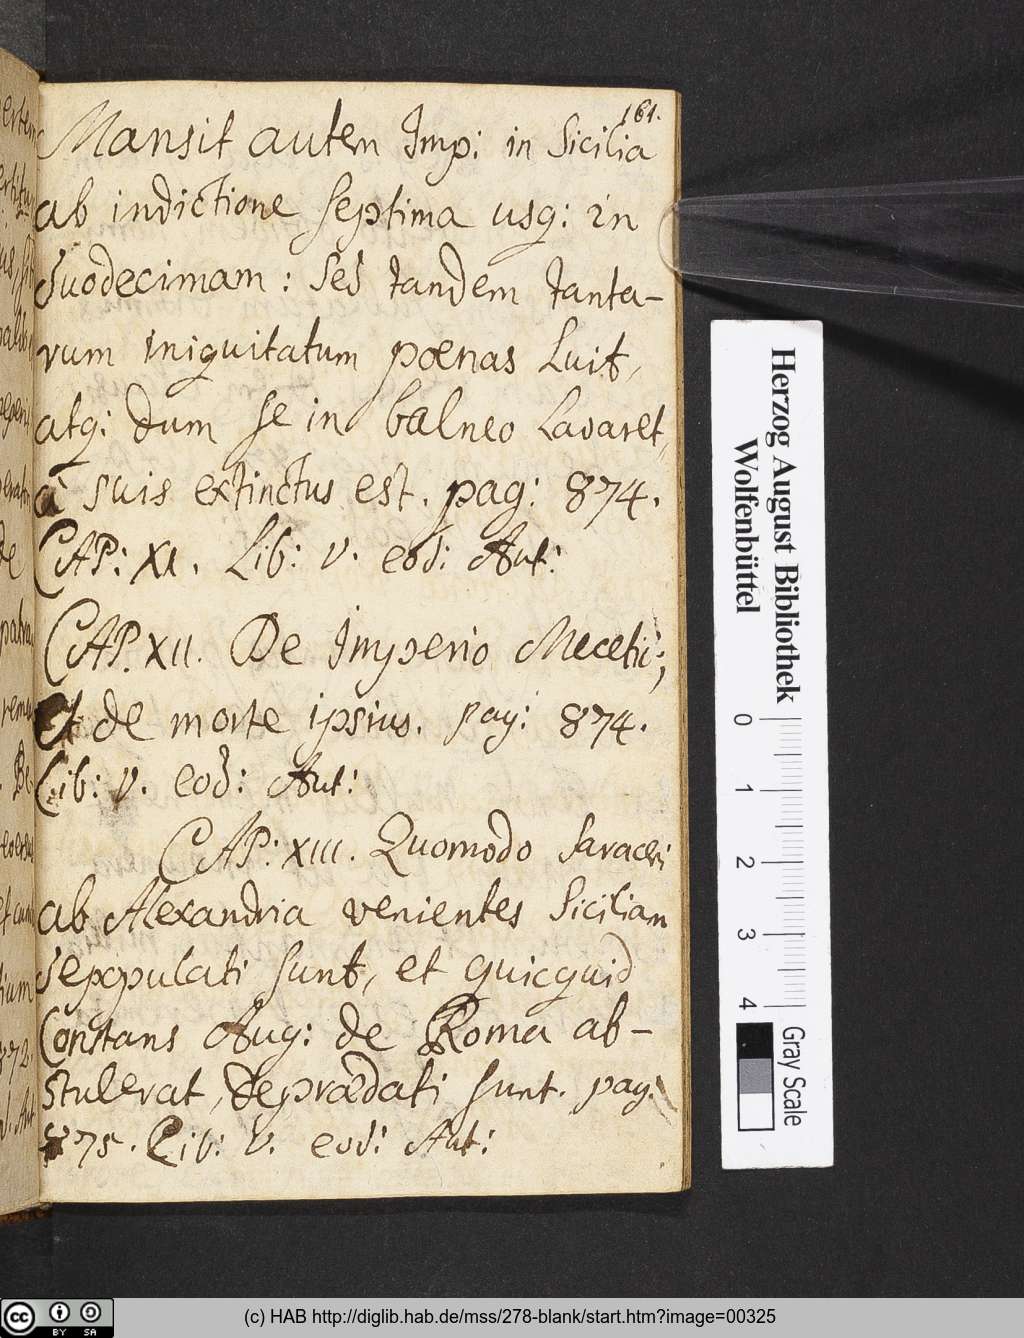 161.
Mansit autem Imp: in Sicilia
ab indictione septima usq: in
duodecimam: sed tandem tanta-
rum iniquitatum poenas luit,
atq: dum se in balneo lavaret,
à suis extinctus est. pag: 874.
CAP: XI. Lib: V. eod: Aut:
CAP. XII. De Imperio Mecetii;
Et de morte ipsius. pag: 874.
Lib: V. eod: Aut:
CAP: XIII. Quomodo Saraceni
ab Alexandria venientes Siciliam
depopulati sunt, et quicquid
Constans Aug: de Roma ab-
stulerat, depraedati sunt. pag:
875. Lib: V. eod: Aut:
Herzog August Bibliothek
Wolfenbüttel
0 1 2 3 4
Gray Scale
cc BY SA
(c) HAB http://diglib.hab.de/mss/278-blank/start.htm?image=00325